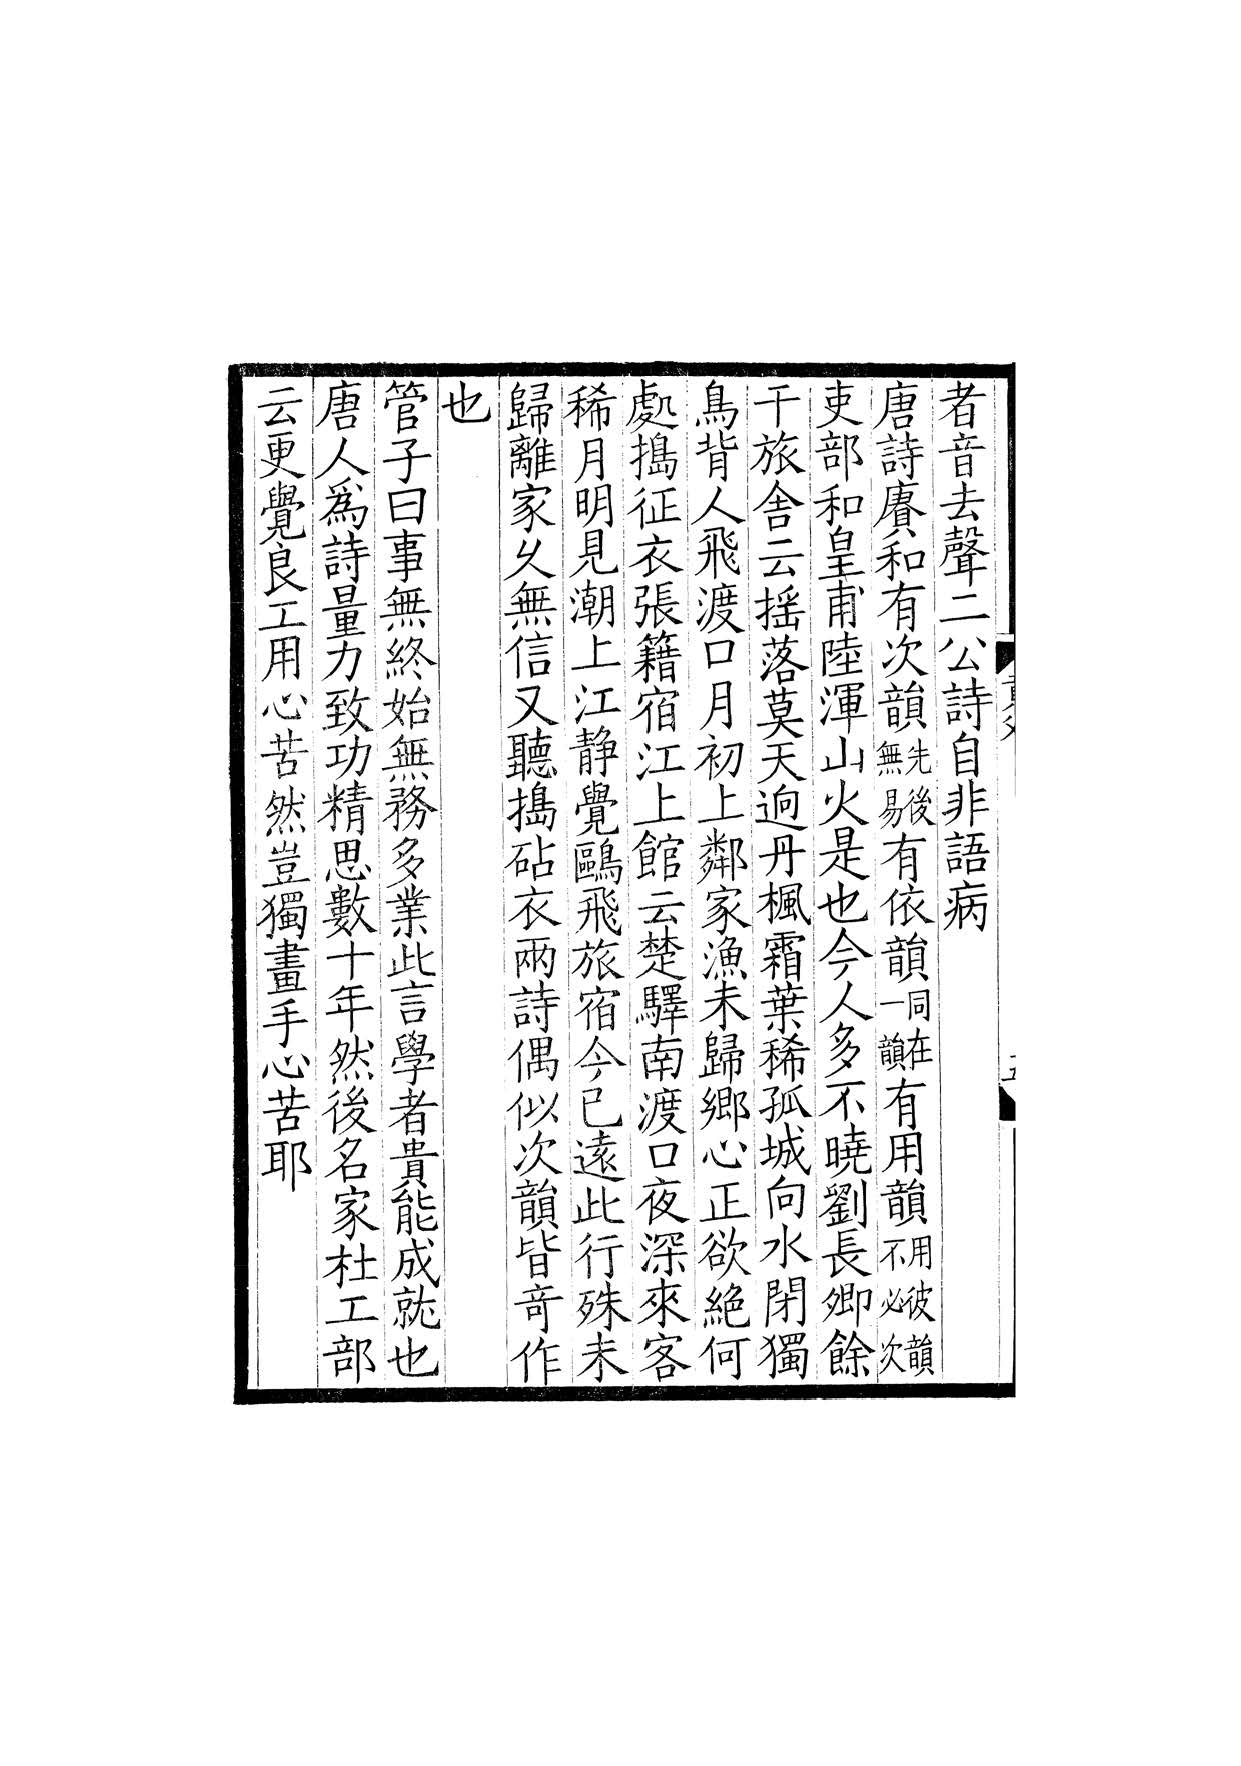 者音去聲二公詩自非語病
唐詩賡和有次韻先後無易有依韻同在一韻有用韻用彼韻不必次
吏部和皇甫陸渾山火是也今人多不曉劉長卿餘
干旅舍云揺落莫天逈丹楓霜葉稀孤城向水閉獨
鳥背人飛渡口月初上鄰家漁未歸鄉心正欲絕何
處搗征衣張籍宿江上館云楚驛南渡口夜深來客
稀月明見潮上江静覺鷗飛旅宿今已遠此行殊未
歸離家久無信又聽搗砧衣兩詩偶似次韻皆奇作
也
管子曰事無終始無務多業此言學者貴能成就也
唐人爲詩量力致功精思數十年然後名家杜工部
云更覺良工用心苦然豈獨畫手心苦耶